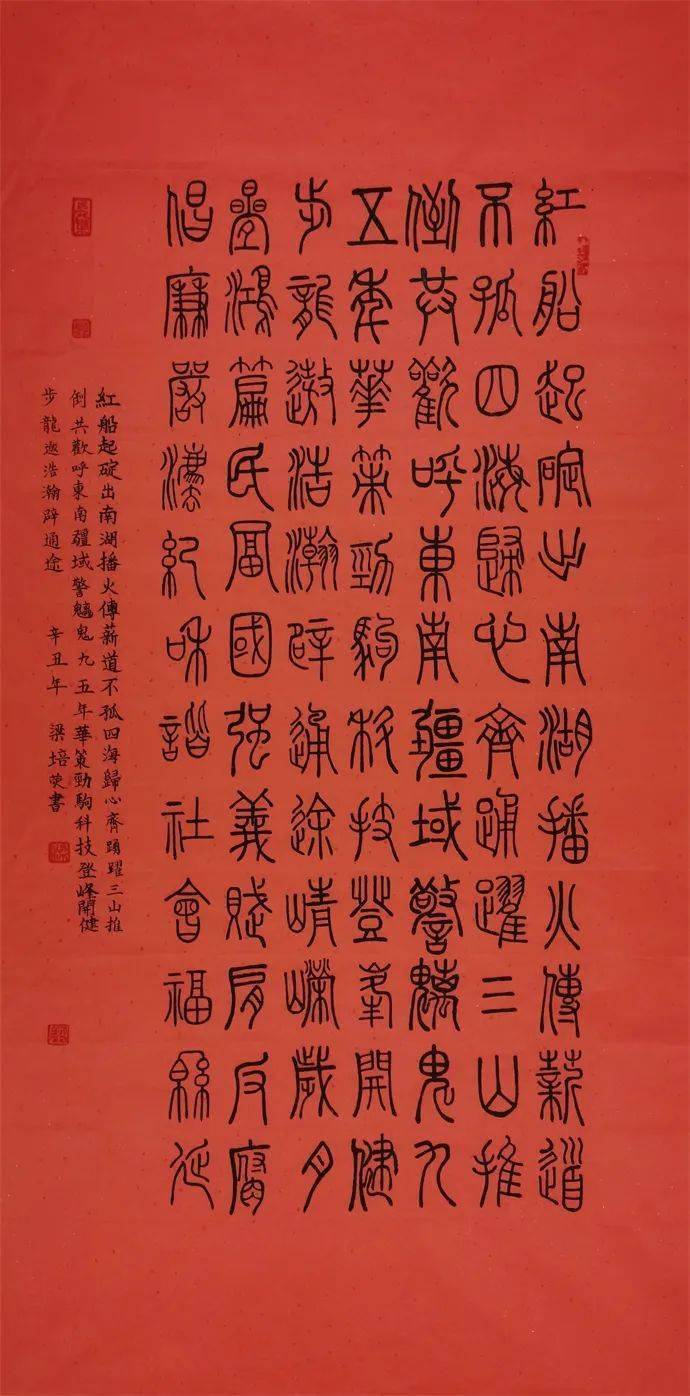 紅船起碇出南湖播火傳薪道
不孤四海歸心齊踊躍三山推
倒共歡呼東南疆域警魑鬼九
五年華策勁駒科技登峯開健
步龍遨浩瀚辟通途崢嶸歲月
疊鴻篇民富國强義賤肩反腐
倡廉嚴灋紀和諧社會福緜延
紅船起碇出南湖播火傳薪道不孤四海歸心齊踴躍三山推
倒共歡呼東南疆域警魑鬼九五年華策勁駒科技登峰開健
步龍遨浩瀚辟通途 辛丑年 梁培熒書